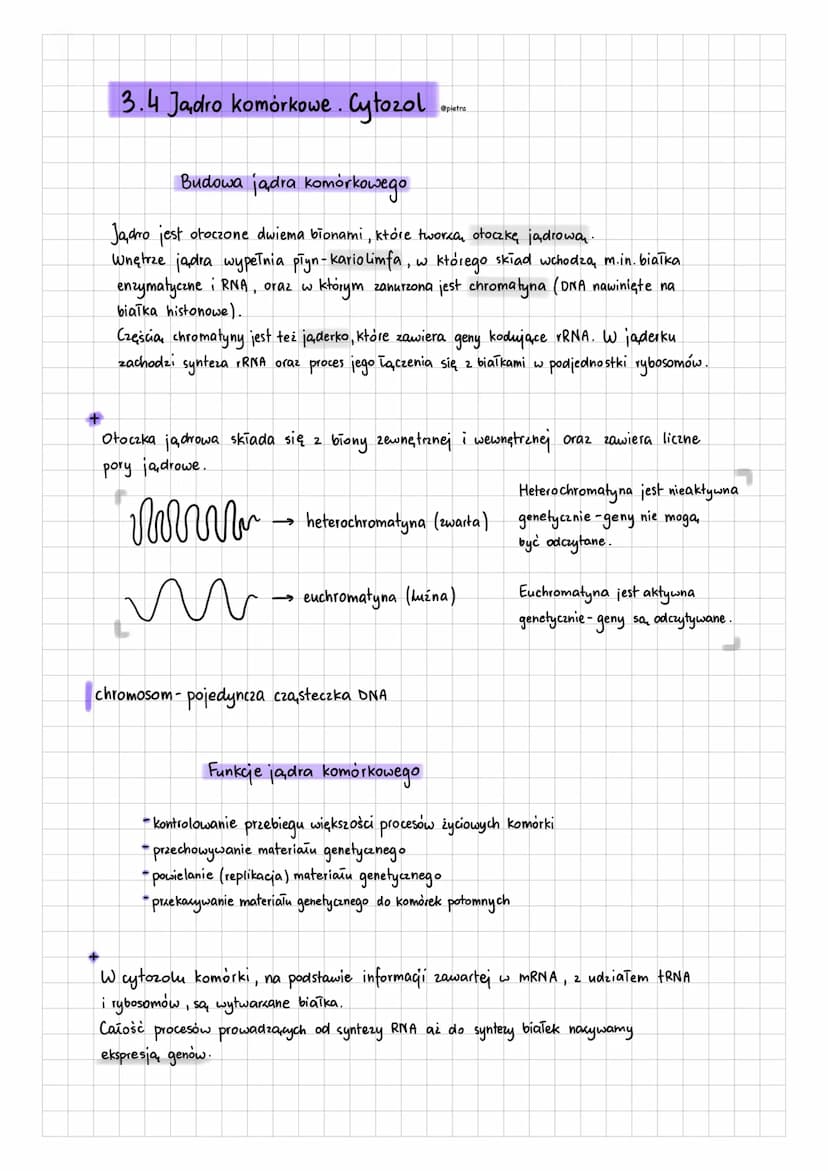 3.4 Jądro komórkowe. Cytozol @pietra
Budowa jądra komórkowego
Jądro jest otoczone dwiema błonami, które tworzą otoczkę jądrową.
Wnętrze jądra wypełnia płyn-kariolimfa, w którego skład wchodzą m.in. białka
enzymatyczne i RNA, oraz w którym zanurzona jest chromatyna (DNA nawinięte na
białka histonowe).
Częścią chromatyny jest też jąderko, które zawiera geny kodujące rRNA. W jąderku
zachodzi synteza rRNA oraz proces jego łączenia się z białkami w podjednostki rybosomów.
+
Otoczka jądrowa składa się z błony zewnętrznej i wewnętrznej oraz zawiera liczne
pory jądrowe.
→ heterochromatyna (zwarta)
Heterochromatyna jest nieaktywna
genetycznie - geny nie mogą
być odczytane.
→ euchromatyna (luźna)
Euchromatyna jest aktywna
genetycznie - geny są odczytywane.
chromosom - pojedyncza cząsteczka DNA
Funkcje jądra komórkowego
- kontrolowanie przebiegu większości procesów życiowych komórki
- przechowywanie materiału genetycznego
- powielanie (replikacja) materiału genetycznego
- przekazywanie materiału genetycznego do komórek potomnych
+
W cytozolu komórki, na podstawie informacji zawartej w mRNA, z udziałem tRNA
i rybosomów, są wytwarzane białka.
Całość procesów prowadzących od syntezy RNA aż do syntezy białek nazywamy
ekspresją genów.